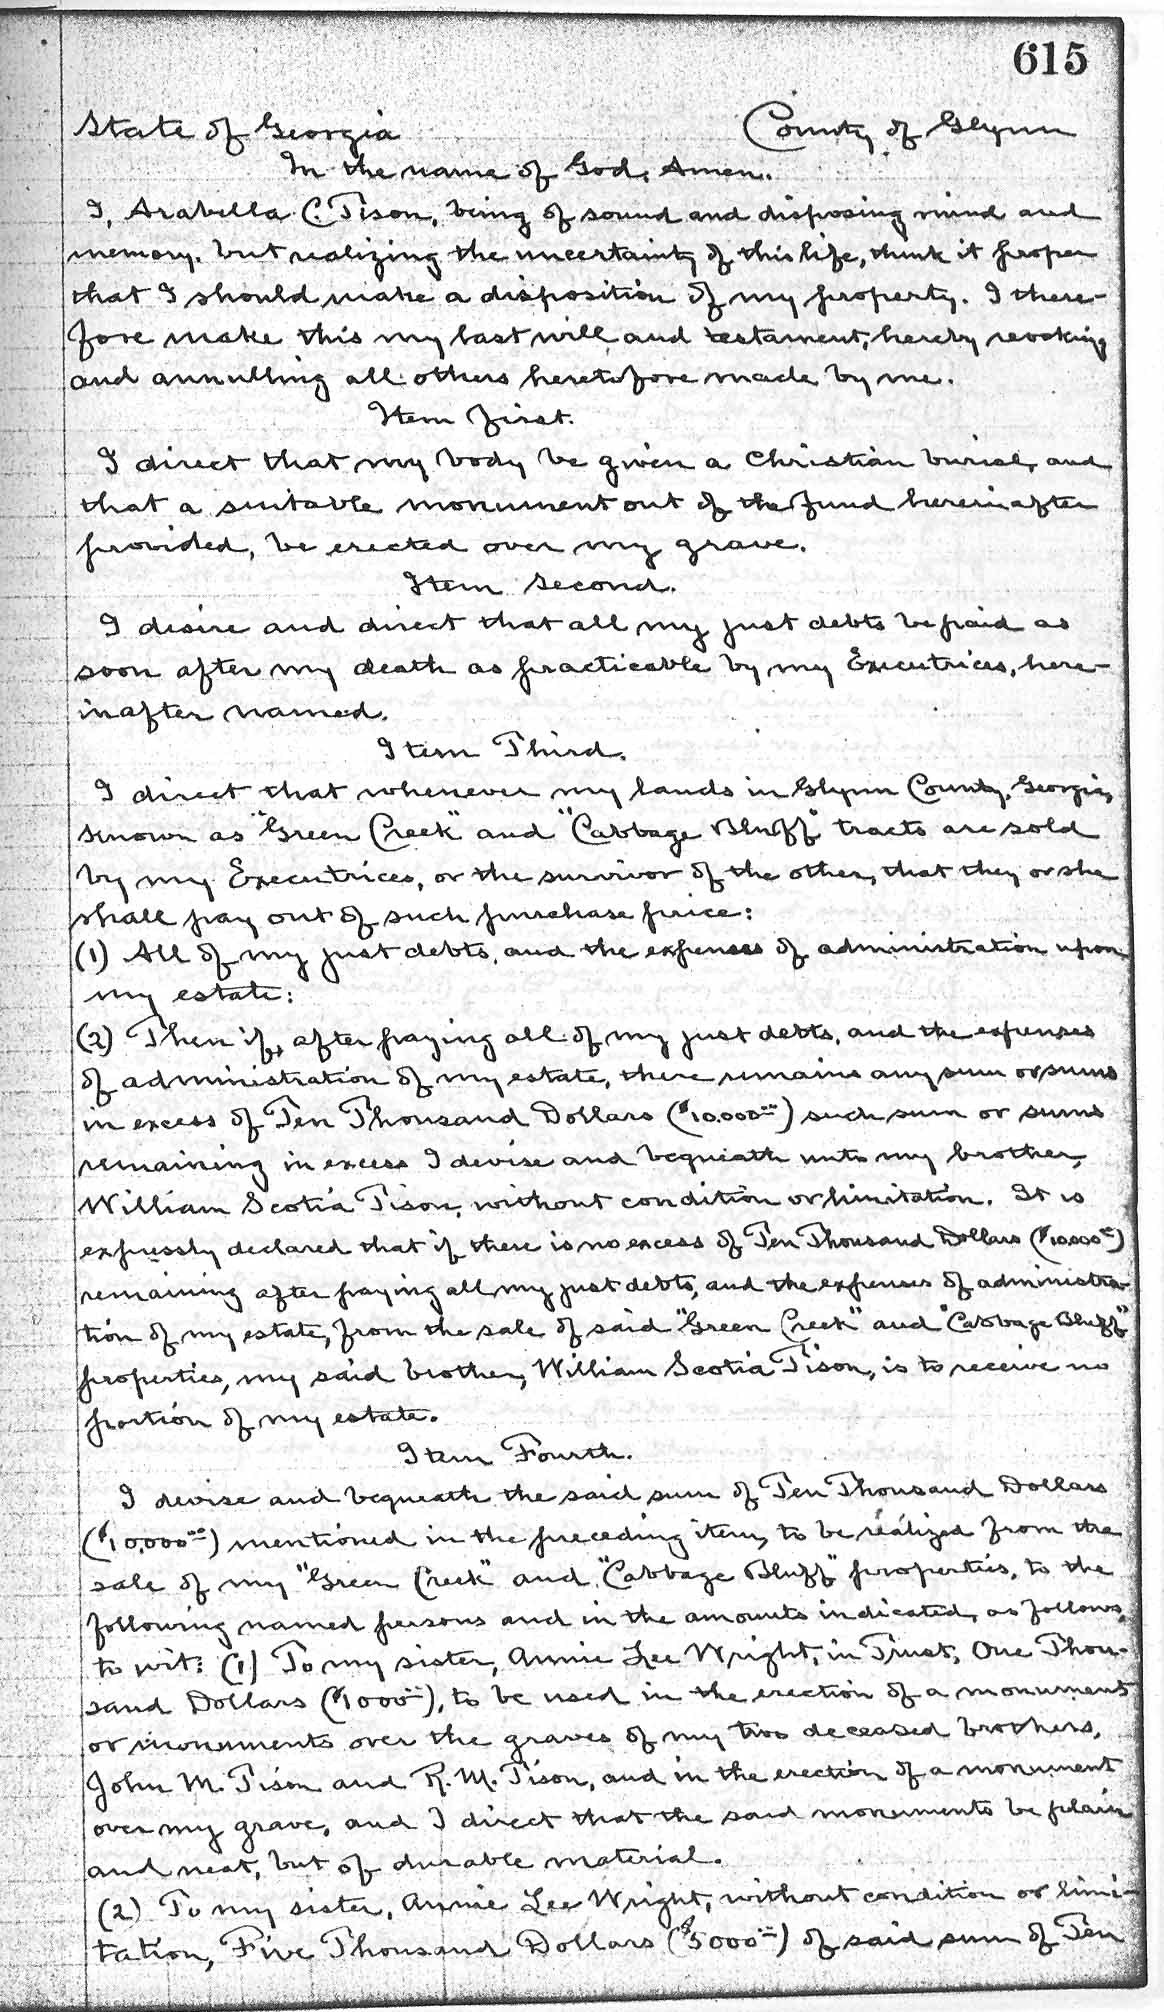 615
State of Georgia County of Glynn
In the name of God, Amen.
I, Arabella C. Tison, being of sound and disposing mind and
memory, but realizing the uncertainty of this life, think it proper
that I should make a disposition of my property. I there-
fore make this my last will and testament, hereby revoking
and annulling all others heretofore made by me.
Item First.
I direct that my body be given a Christian burial, and
that a suitable monument out of the fund hereinafter
provided, be erected over my grave.
Item Second.
I desire and direct that all my just debts be paid as
soon after my death as practicable by my Executrices, here-
inafter named.
Item Third.
I direct that whenever my lands in Glynn County, Georgia,
known as "Green Creek" and "Cabbage Bluff" tracts are sold
by my Executrices, or the survivor of the other, that they or she
shall pay out of such purchase price:
(1) All of my just debts, and the expenses of administration upon
my estate:
(2) Then if, after paying all of my just debts, and the expenses
of administration of my estate, there remains any sum or sums
in excess of Ten Thousand Dollars ($10,000.00) such sum or sums
remaining in excess I devise and bequeath unto my brother,
William Scotia Tison, without condition or limitation. It is
expressly declared that if there is no excess of Ten Thousand Dollars ($10,000.00)
remaining after paying all my just debts, and the expenses of administra-
tion of my estate, from the sale of said "Green Creek" and "Cabbage Bluff"
properties, my said brother, William Scotia Tison, is to receive no
portion of my estate.
Item Fourth.
I devise and bequeath the said sum of Ten Thousand Dollars
($10,000.00) mentioned in the preceding item, to be realized from the
sale of my "Green Creek" and "Cabbage Bluff" properties, to the
following named persons and in the amounts indicated, as follows,
to wit: (1) To my sister, Annie Lee Wright, in Trust, One Thou-
sand Dollars ($1000.00), to be used in the erection of a monument
or monuments over the graves of my two deceased brothers,
John M. Tison and R. M. Tison, and in the erection of a monument
over my grave, and I direct that the said monuments be plain
and neat, but of durable material.
(2) To my sister, Annie Lee Wright, without condition or limi-
tation, Five Thousand Dollars ($5000.00) of said sum of Ten